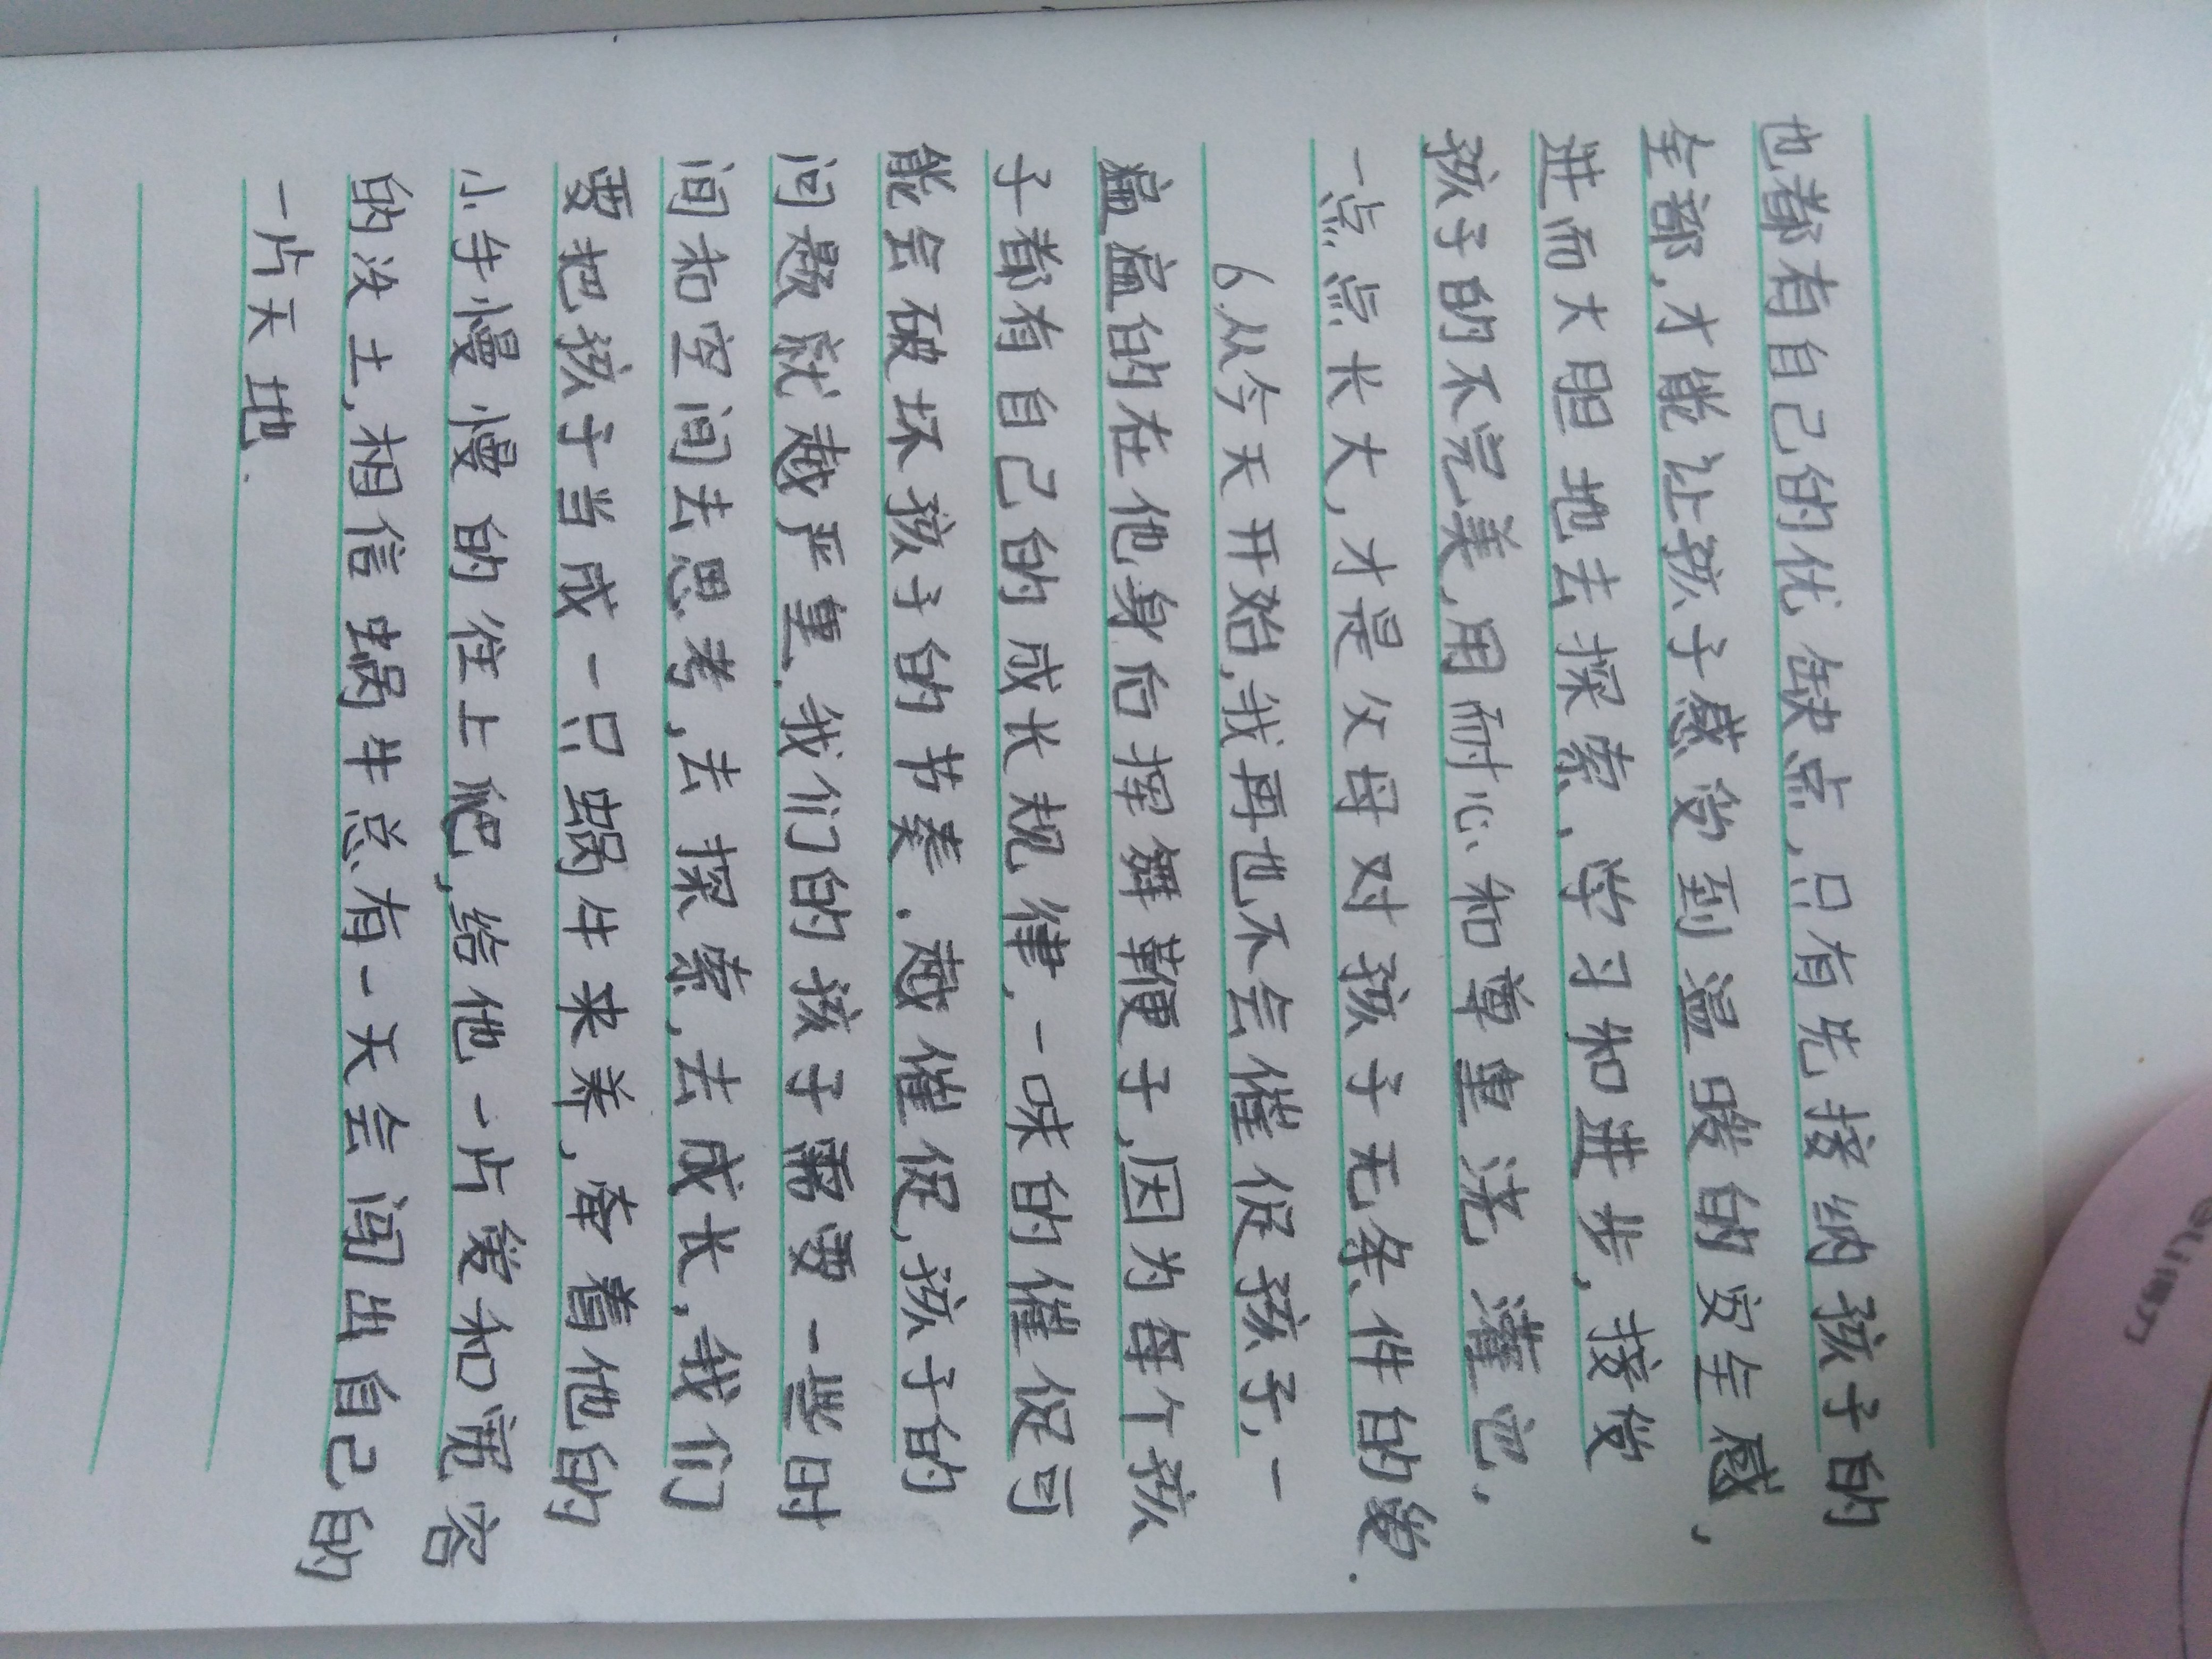 也都有自己的优缺点,只有先接纳孩子的
全部,才能让孩子感觉到温暖的安全感,
进而大胆地去探索、学习和进步,接受
孩子的不完美,用耐心和尊重浇灌它.
一点点长大,才是父母对孩子无条件的爱.
6.从今天开始,我再也不会催促孩子,一
遍遍的在他身后挥舞鞭子,因为每个孩
子都有自己的成长规律,一味的催促可
能会破坏孩子的节奏.越催促,孩子的
问题就越严重.我们的孩子需要一些时
间和空间去思考,去探索,去成长,我们
要把孩子当成一只蜗牛来养,看着他的
小牛慢慢的往上爬,给他一片爱和宽容
的沃土,相信蜗牛总有一天会闯出自己的
一片天地.